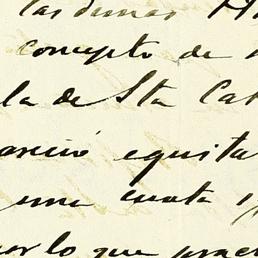 las demas
concepto de
la de Sta Cat
areció equita
una cuota y
por lo que prac